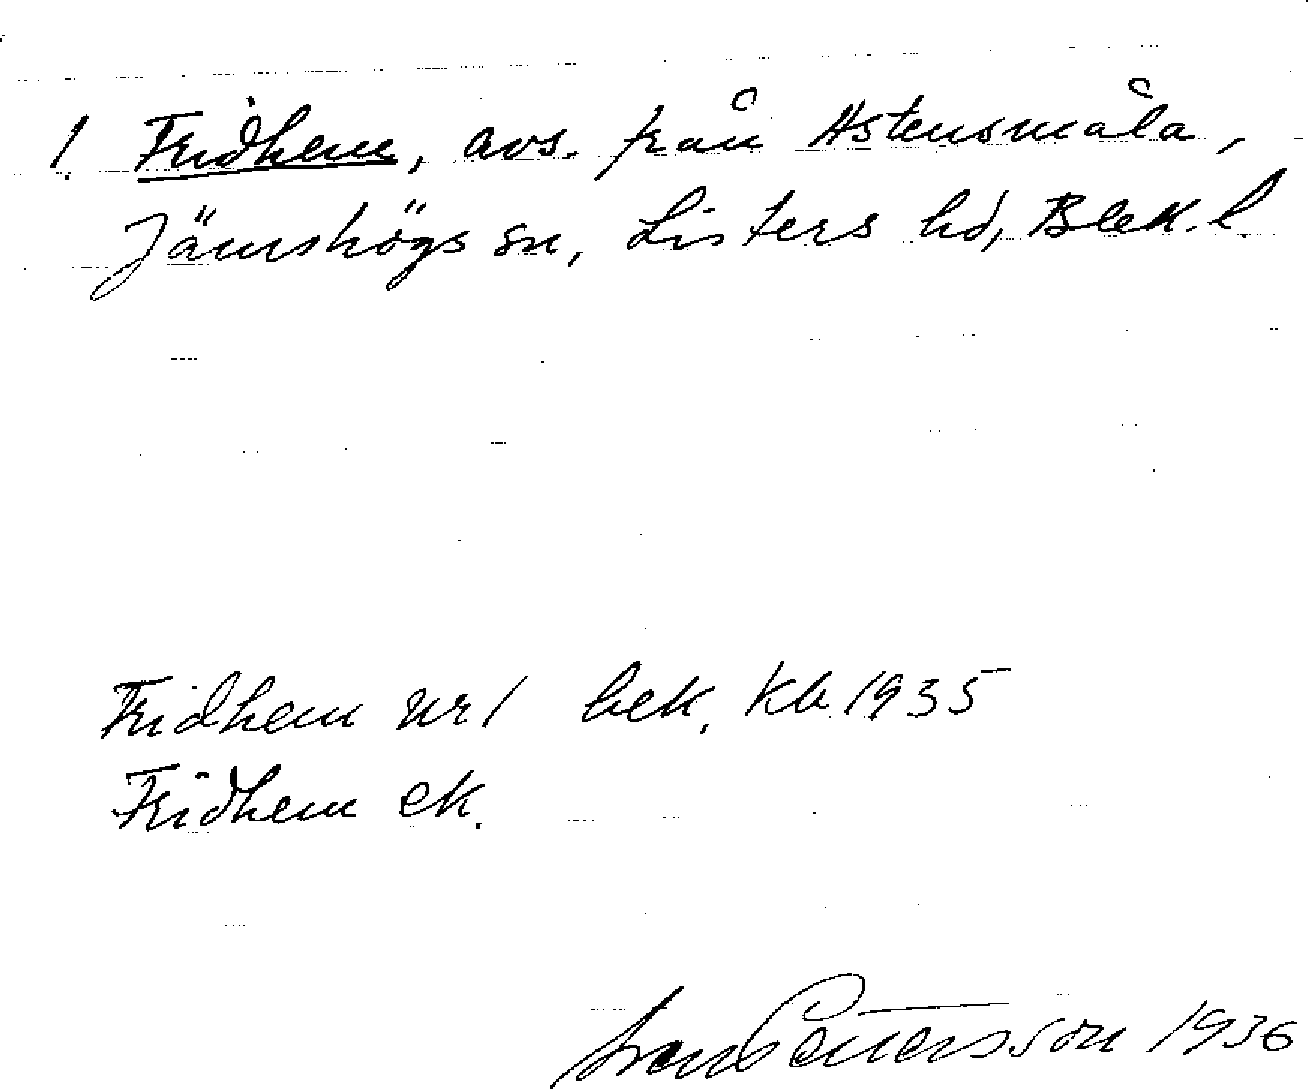 1. Fridhem, avs. från Astensmåla,
Jämshögs sn, Listers hd, Blek. l.
Fridhem nr 1 bek. Kb. 1935
Fridhem ek.
Pettersson 1936